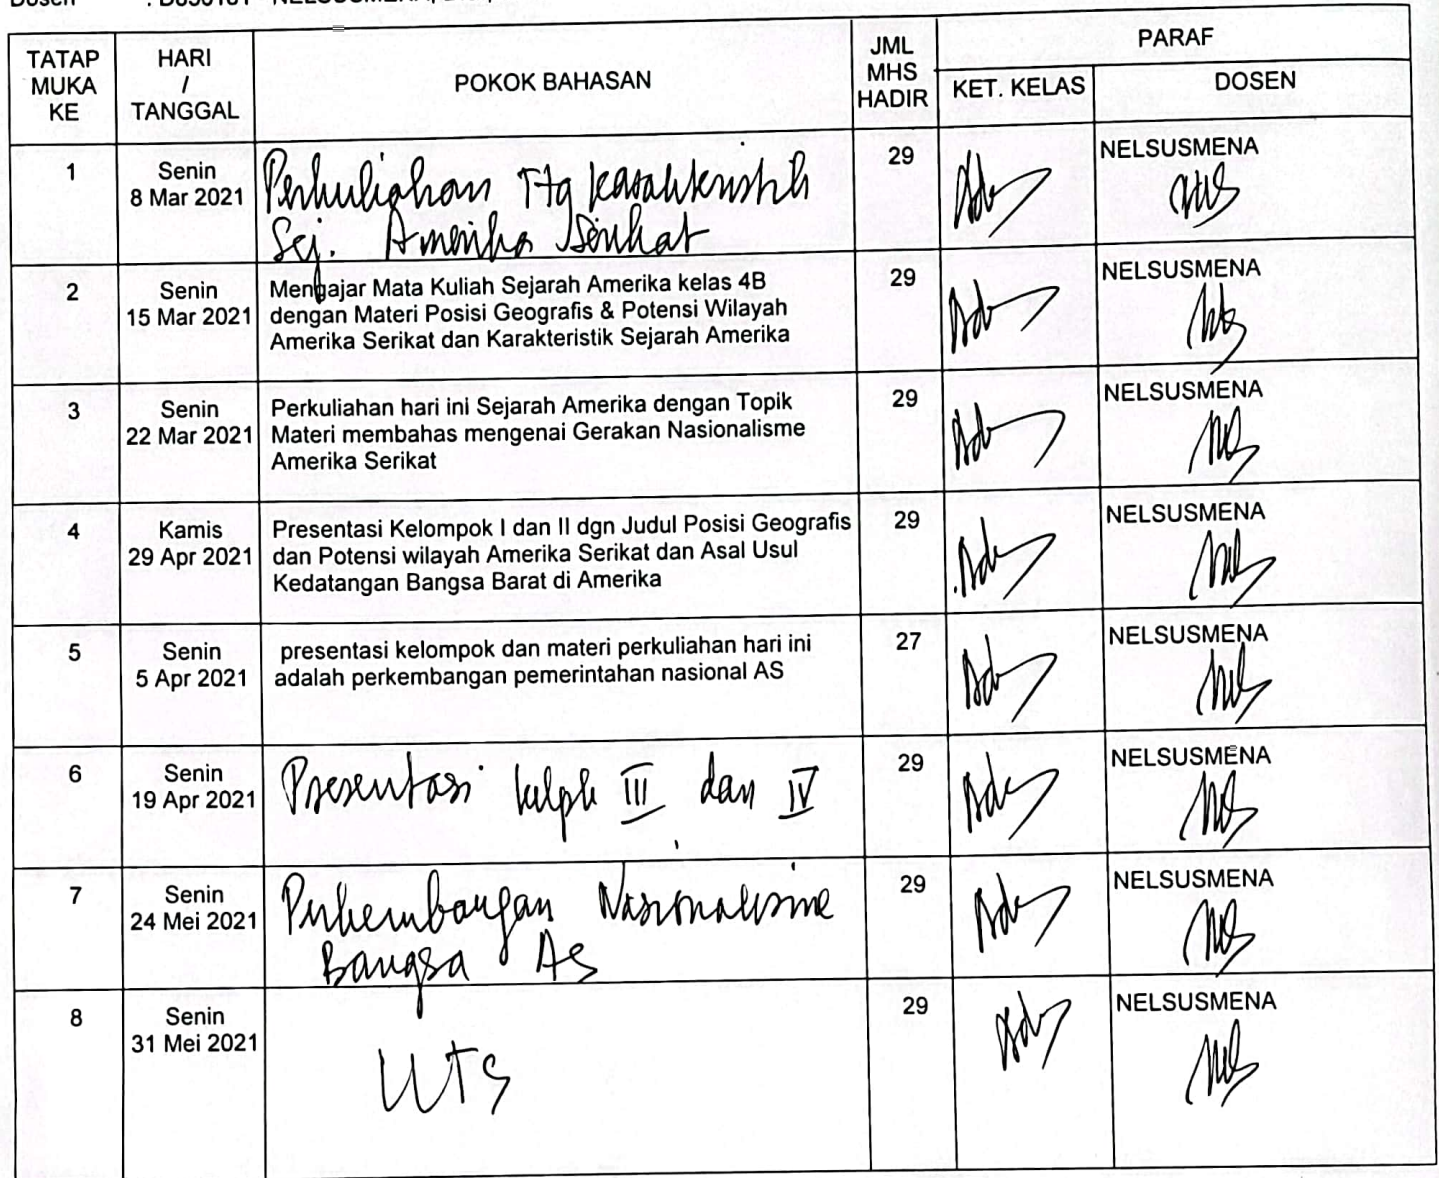 NELSUSMENA
TATAP MUKA KE
HARI / TANGGAL
POKOK BAHASAN
JML MHS HADIR
PARAF
KET. KELAS
DOSEN
1
Senin
8 Mar 2021
Perkuliahan Ttg karakteristik
Sej. Amerika Serikat
29
NELSUSMENA
2
Senin
15 Mar 2021
Mengajar Mata Kuliah Sejarah Amerika kelas 4B
dengan Materi Posisi Geografis & Potensi Wilayah
Amerika Serikat dan Karakteristik Sejarah Amerika
29
NELSUSMENA
3
Senin
22 Mar 2021
Perkuliahan hari ini Sejarah Amerika dengan Topik
Materi membahas mengenai Gerakan Nasionalisme
Amerika Serikat
29
NELSUSMENA
4
Kamis
29 Apr 2021
Presentasi Kelompok I dan II dgn Judul Posisi Geografis
dan Potensi wilayah Amerika Serikat dan Asal Usul
Kedatangan Bangsa Barat di Amerika
29
NELSUSMENA
5
Senin
5 Apr 2021
presentasi kelompok dan materi perkuliahan hari ini
adalah perkembangan pemerintahan nasional AS
27
NELSUSMENA
6
Senin
19 Apr 2021
Presentasi klpk III dan IV
29
NELSUSMENA
7
Senin
24 Mei 2021
Perkembangan Nasionalisme
Bangsa AS
29
NELSUSMENA
8
Senin
31 Mei 2021
UTS
29
NELSUSMENA